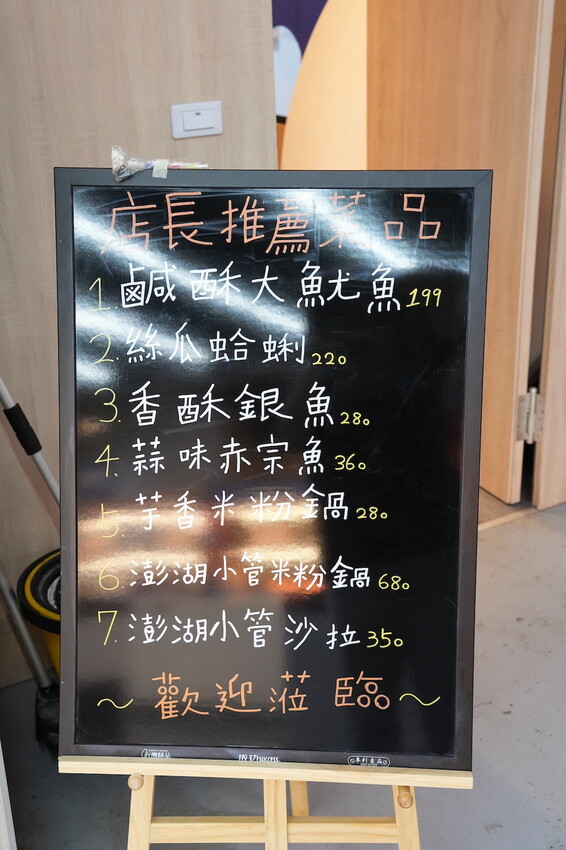 店長推薦菜品
1. 鹹酥大魷魚 199
2. 絲瓜蛤蜊 220
3. 香酥銀魚 280
4. 蒜味赤宗魚 360
5. 芋香米粉鍋 280
6. 澎湖小管米粉鍋 680
7. 澎湖小管沙拉 350
～歡迎蒞臨～
成功 SUCCESS
專利產品